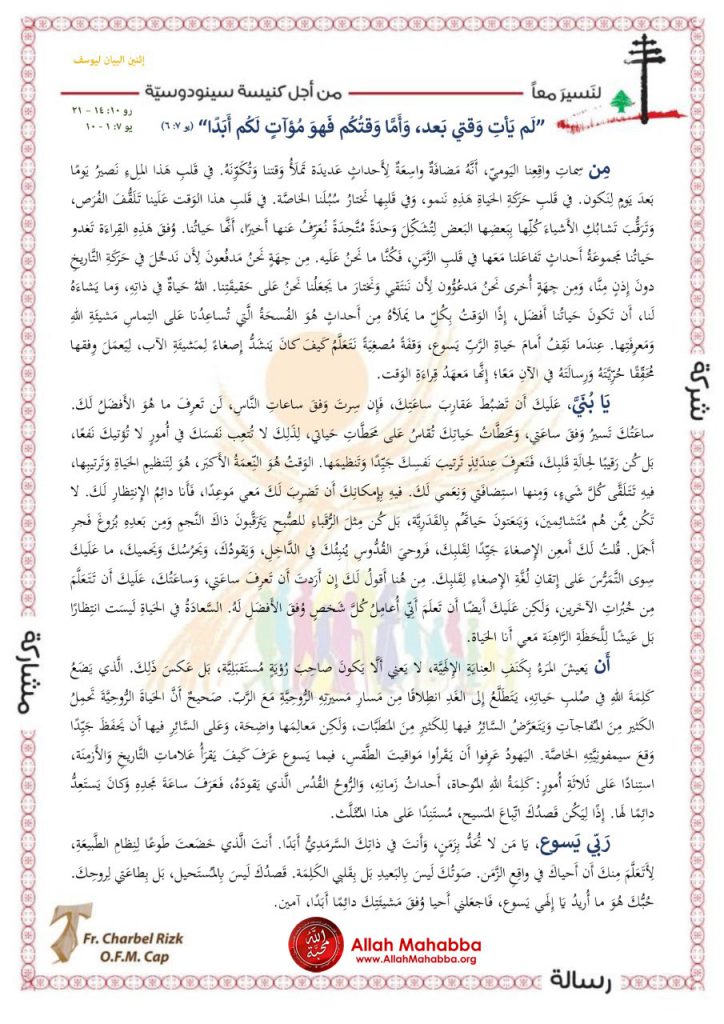 إثنين البيان ليوسف
لنَسيرَ معاً
من أجل كنيسة سينودوسيّة
رو ١٠: ١٤ - ٢١
يو ٧: ١ - ١٠
”لَم يَأتِ وَقتي بَعد، وَأَمَّا وَقتُكُم فَهوَ مُؤآتٍ لَكُم أَبَدًا“ (يو ٧: ٦)
مِن سِماتِ واقِعِنا اليَوميّ، أَنَّهُ مَضافَةٌ واسِعَةٌ لِأَحداثٍ عَديدَة تَملَأُ وَقتنا وتُكَوِّنَهُ. في قَلبِ هَذا المِلءِ نَصيرُ يَومًا
بَعدَ يَومٍ لِنَكون. في قَلبِ حَرَكَةِ الحَياةِ هَذِهِ نَنمو، وفي قَلبِها نَختارُ سُبُلَنا الخاصَّة. في قَلبِ هذا الوَقت عَلَينا تَلَقُّفَ الفُرَص،
وتَرَقُّبَ تَشابُكِ الأَشياءَ كُلِّها بِبَعضِها البَعض لِتُشَكِّلَ وَحدَةً مُتَّحِدَةً نُعَرِّفُ عَنها أَخيرًا، أَنَّها حَياتُنا. وُفقَ هَذِهِ القِراءَة تَغدو
حَياتُنا مَجموعَةُ أَحداثٍ تَفاعَلنا مَعَها في قَلبِ الزَّمَن، فَكُنَّا ما نَحنُ عَلَيه. مِن جِهَةٍ نَحنُ مَدفُعونَ لِأَن نَدخُلَ في حَرَكَةِ التَّاريخِ
دونَ إِذنٍ مِنَّا، وَمِن جِهَةٍ أُخرى نَحنُ مَدعُؤُون لِأَن نَنتَقي وَنَختارَ ما يَجعَلُنا نَحنُ على حَقيقَتِنا. اللهُ حَياةٌ في ذاتِهِ، وَما يَشاءَهُ
لَنا، أَن تَكونَ حَياتُنا أَفضَل، إِذًا الوَقتُ بِكُلِّ ما يَملَأهُ مِن أَحداثٍ هُوَ الفُسحَةُ الَّتي تُساعِدُنا عَلى التِماسِ مَشيئَةِ اللهِ
وَمَعرِفَتِها. عِندَما نَقِفُ أَمامَ حَياةِ الرَّبِّ يَسوع، وَقفَةً مُصغِيَةً نَتَعَلَّمُ كَيفَ كانَ يَنشَدُّ إِصغاءً لِمَشيئَةِ الآب، لِيَعمَلَ وِفقها
مُحَقِّقًا حُرِّيَّتَهُ وَرِسالَتَهُ في الآنِ مَعًا؛ إِنَّها مَعهَدُ قِراءَةِ الوَقت.
يَا بُنَيَّ، عَلَيكَ أَن تَضبُطَ عَقارِبَ ساعَتِكَ، فَإِن سِرتَ وَفقَ ساعاتِ النَّاس، لَن تَعرِفَ ما هُوَ الأَفضَلُ لَكَ.
ساعَتُكَ تَسيرُ وَفقَ ساعَتي، وَمَحَطَّاتُ حَياتِكَ تُقاسُ عَلى مَحَطَّاتِ حَياتي، لِذَلِكَ لا تُتعِب نَفسَكَ في أُمورٍ لا تُؤتيكَ نَفعًا،
بَل كُن رَقيبًا لِحالَةِ قَلبِكَ، فَتَعرِفَ عِندَئِذٍ تَرتيبَ نَفسِكَ جَيِّدًا وَتَنظيمَها. الوَقتُ هُوَ النِّعمَةُ الأَكبَر، هُوَ لِتَنظيمِ الحَياةِ وَتَرتيبِها،
فيهِ تَتَلَقَّى كُلَّ شَيءٍ، وَمِنها استِضافَتي وَنِعَمي لَكَ. فيهِ بِإِمكانِكَ أَن تَضرِبَ لَكَ مَعي مَوعِدًا، فَأَنا دائِمُ الإِنتِظارِ لَكَ. لا
تَكُن مِمَّن هُم مُتَشائِمينَ، وَيَنعَتونَ حَياتَهُم بِالقَدَرِيَّة، بَل كُن مِثلَ الرُّقَباءِ لِلصُّبحِ يَتَرَقَّبونَ ذاكَ النَّجمِ وَمِن بَعدِهِ بُزوغَ فَجرٍ
أَجمَل. قُلتُ لَكَ أَمعِن الإِصغاءَ جَيِّدًا لِقَلبِكَ، فَروحيَ القُدُّوس يُنبِئُكَ في الدَّاخِل، وَيَقودُكَ، وَيَحرُسُكَ وَيَحميكَ، ما عَلَيكَ
سِوى التَّمَرُّسَ عَلى إِتقانِ لُغَّةِ الإِصغاءِ لِقَلبِكَ. مِن هُنا أَقولُ لَكَ إِن أَرَدتَ أَن تَعرِفَ ساعَتي، وَساعَتُكَ، عَلَيكَ أَن تَتَعَلَّمَ
مِن خُبُراتِ الآخرين، وَلَكِن عَلَيكَ أَيضًا أَن تَعلَمَ أَنِّي أُعامِلُ كُلَّ شَخصٍ وُفقَ الأَفضَلِ لَهُ. السَّعادَةُ في الحَياةِ لَيسَت انتِظارًا
بَل عَيشًا لِلَّحظَةِ الرَّاهِنَة مَعي أَنا الحَياة.
أَن يَعيشَ المَرءُ بِكَنَفِ العِنايَةِ الإِلَهِيَّة، لا يَعني أَلَّا يَكونَ صاحِبَ رُؤيَةٍ مُستَقبَلِيَّة، بَل عَكسَ ذَلِكَ. الَّذي يَضَعُ
كَلِمَةَ اللهِ في صُلبِ حَياتِهِ، يَتَطَلَّعُ إِلى الغَدِ انطِلاقًا مِن مَسارِ مَسيرَتِهِ الرُّوحِيَّةِ مَعَ الرَّبّ. صَحيحٌ أَنَّ الحَياةَ الرُّوحِيَّةَ تَحمِلُ
الكَثير مِنَ المُفاجَآتِ وَيَتَعَرَّضُ السَّائِرُ فيها لِلكَثيرِ مِنَ المَطَبَّات، وَلَكِن مَعالِمَها واضِحَة، وَعَلى السَّائِرِ فيها أَن يَحفَظَ جَيِّدًا
وَقعَ سيمفونِيَّتِهِ الخاصَّة. اليَهودُ عَرِفوا أَن يَقَرأوا مَواقيتَ الطَّقسِ، فيما يَسوع عَرَفَ كَيفَ يَقرَأُ عَلاماتِ التَّاريخِ وَالأَزمِنَة،
استِنادًا عَلى ثَلاثَةِ أُمورٍ: كَلِمَةُ اللهِ المُوحاة، أَحداثُ زَمانِهِ، وَالرُّوحُ القُدُسِ الَّذي يَقودَهُ، فَعَرَفَ ساعَةَ مَجدِهِ وَكانَ يَستَعِدُّ
دائِمًا لَها. إِذًا لِيَكُن قَصدُكَ اتِّباعَ المَسيح، مُستَنِدًا عَلى هذا المُثَلَّث.
رَبِّي يَسوع، يَا مَن لا تُحَدُّ بِزَمَنٍ، وَأَنتَ في ذاتِكَ السَّرمَدِيُّ أَبَدًا. أَنتَ الَّذي خَضَعتَ طَوعًا لِنِظامِ الطَّبيعَةِ،
لِأَتَعَلَّمَ مِنكَ أَن أَحياكَ في واقِعِ الزَّمَن. صَوتُكَ لَيسَ بِالبَعيدِ بَل بِقَلبي الكَلِمَة. قَصدُكَ لَيسَ بِالمُستَحيل، بَل بِطاعَتي لِروحِكَ.
حُبُّكَ هُوَ ما أُريدُ يَا إِلَهي يَسوع، فَاجعَلني أَحيا وُفقَ مَشيئَتِكَ دائِمًا أَبَدًا، آمين.
شركة
مشاركة
رسالة
Fr. Charbel Rizk
O.F.M. Cap
الله
محبّة
Allah Mahabba
www.AllahMahabba.org